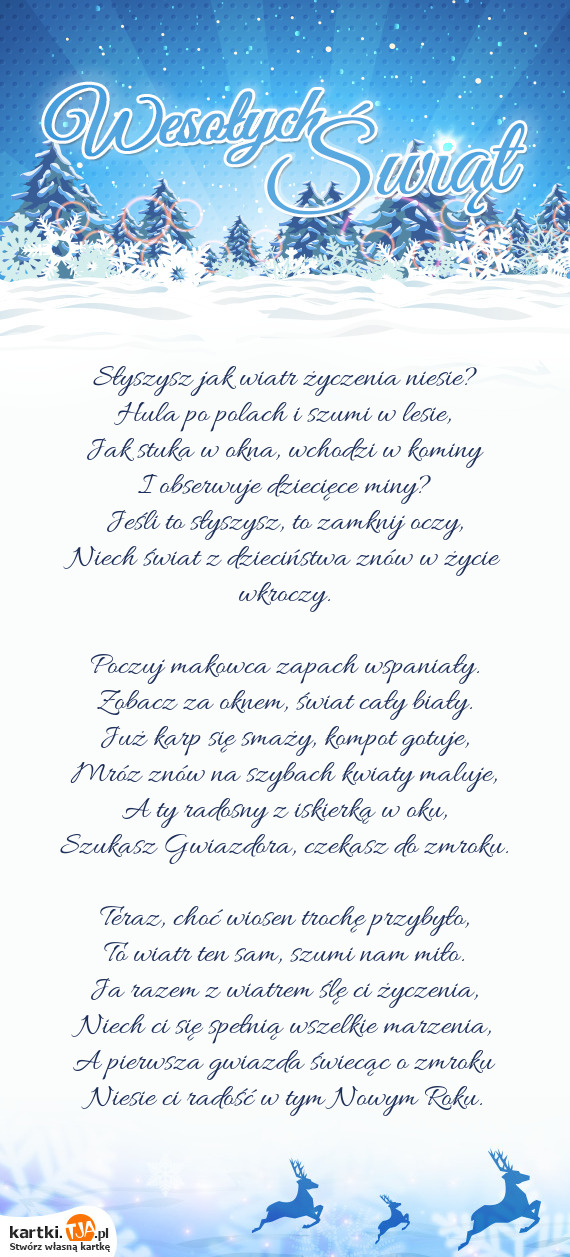 Wesołych
Świąt
Słyszysz jak wiatr życzenia niesie?
Hula po polach i szumi w lesie,
Jak stuka w okna, wchodzi w kominy
I obserwuje dziecięce miny?
Jeśli to słyszysz, to zamknij oczy,
Niech świat z dzieciństwa znów w życie
wkroczy.
Poczuj makowca zapach wspaniały.
Zobacz za oknem, świat cały biały.
Już karp się smaży, kompot gotuje,
Mróz znów na szybach kwiaty maluje,
A ty radosny z iskierką w oku,
Szukasz Gwiazdora, czekasz do zmroku.
Teraz, choć wiosen trochę przybyło,
To wiatr ten sam, szumi nam miło.
Ja razem z wiatrem ślę ci życzenia,
Niech ci się spełnią wszelkie marzenia,
A pierwsza gwiazda świecąc o zmroku
Niesie ci radość w tym Nowym Roku.
kartki.TJA.pl
Stwórz własną kartkę